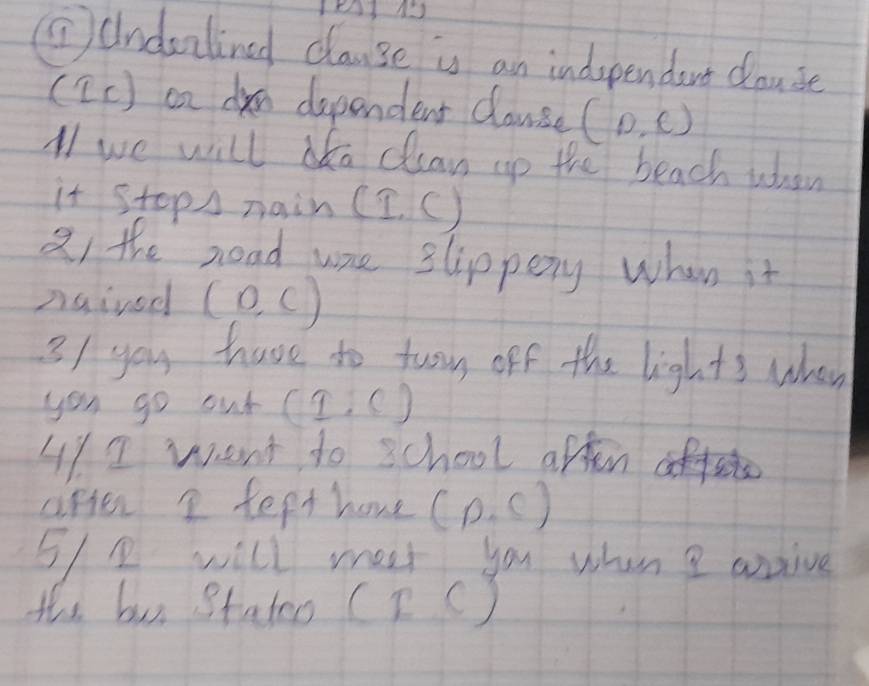 ① Underlined clause is an independent clause
(I c) or dependent clause (D. C)
1/ we will clean up the beach when
it stops rain (I. C)
2/ the road wre slippery when it
rained (D. C)
3/ you have to turn off the lights when
you go out (I. C)
4/ I went to school after
after I left home (D. C)
5/ I will meet you when I arrive
the bus (I C)